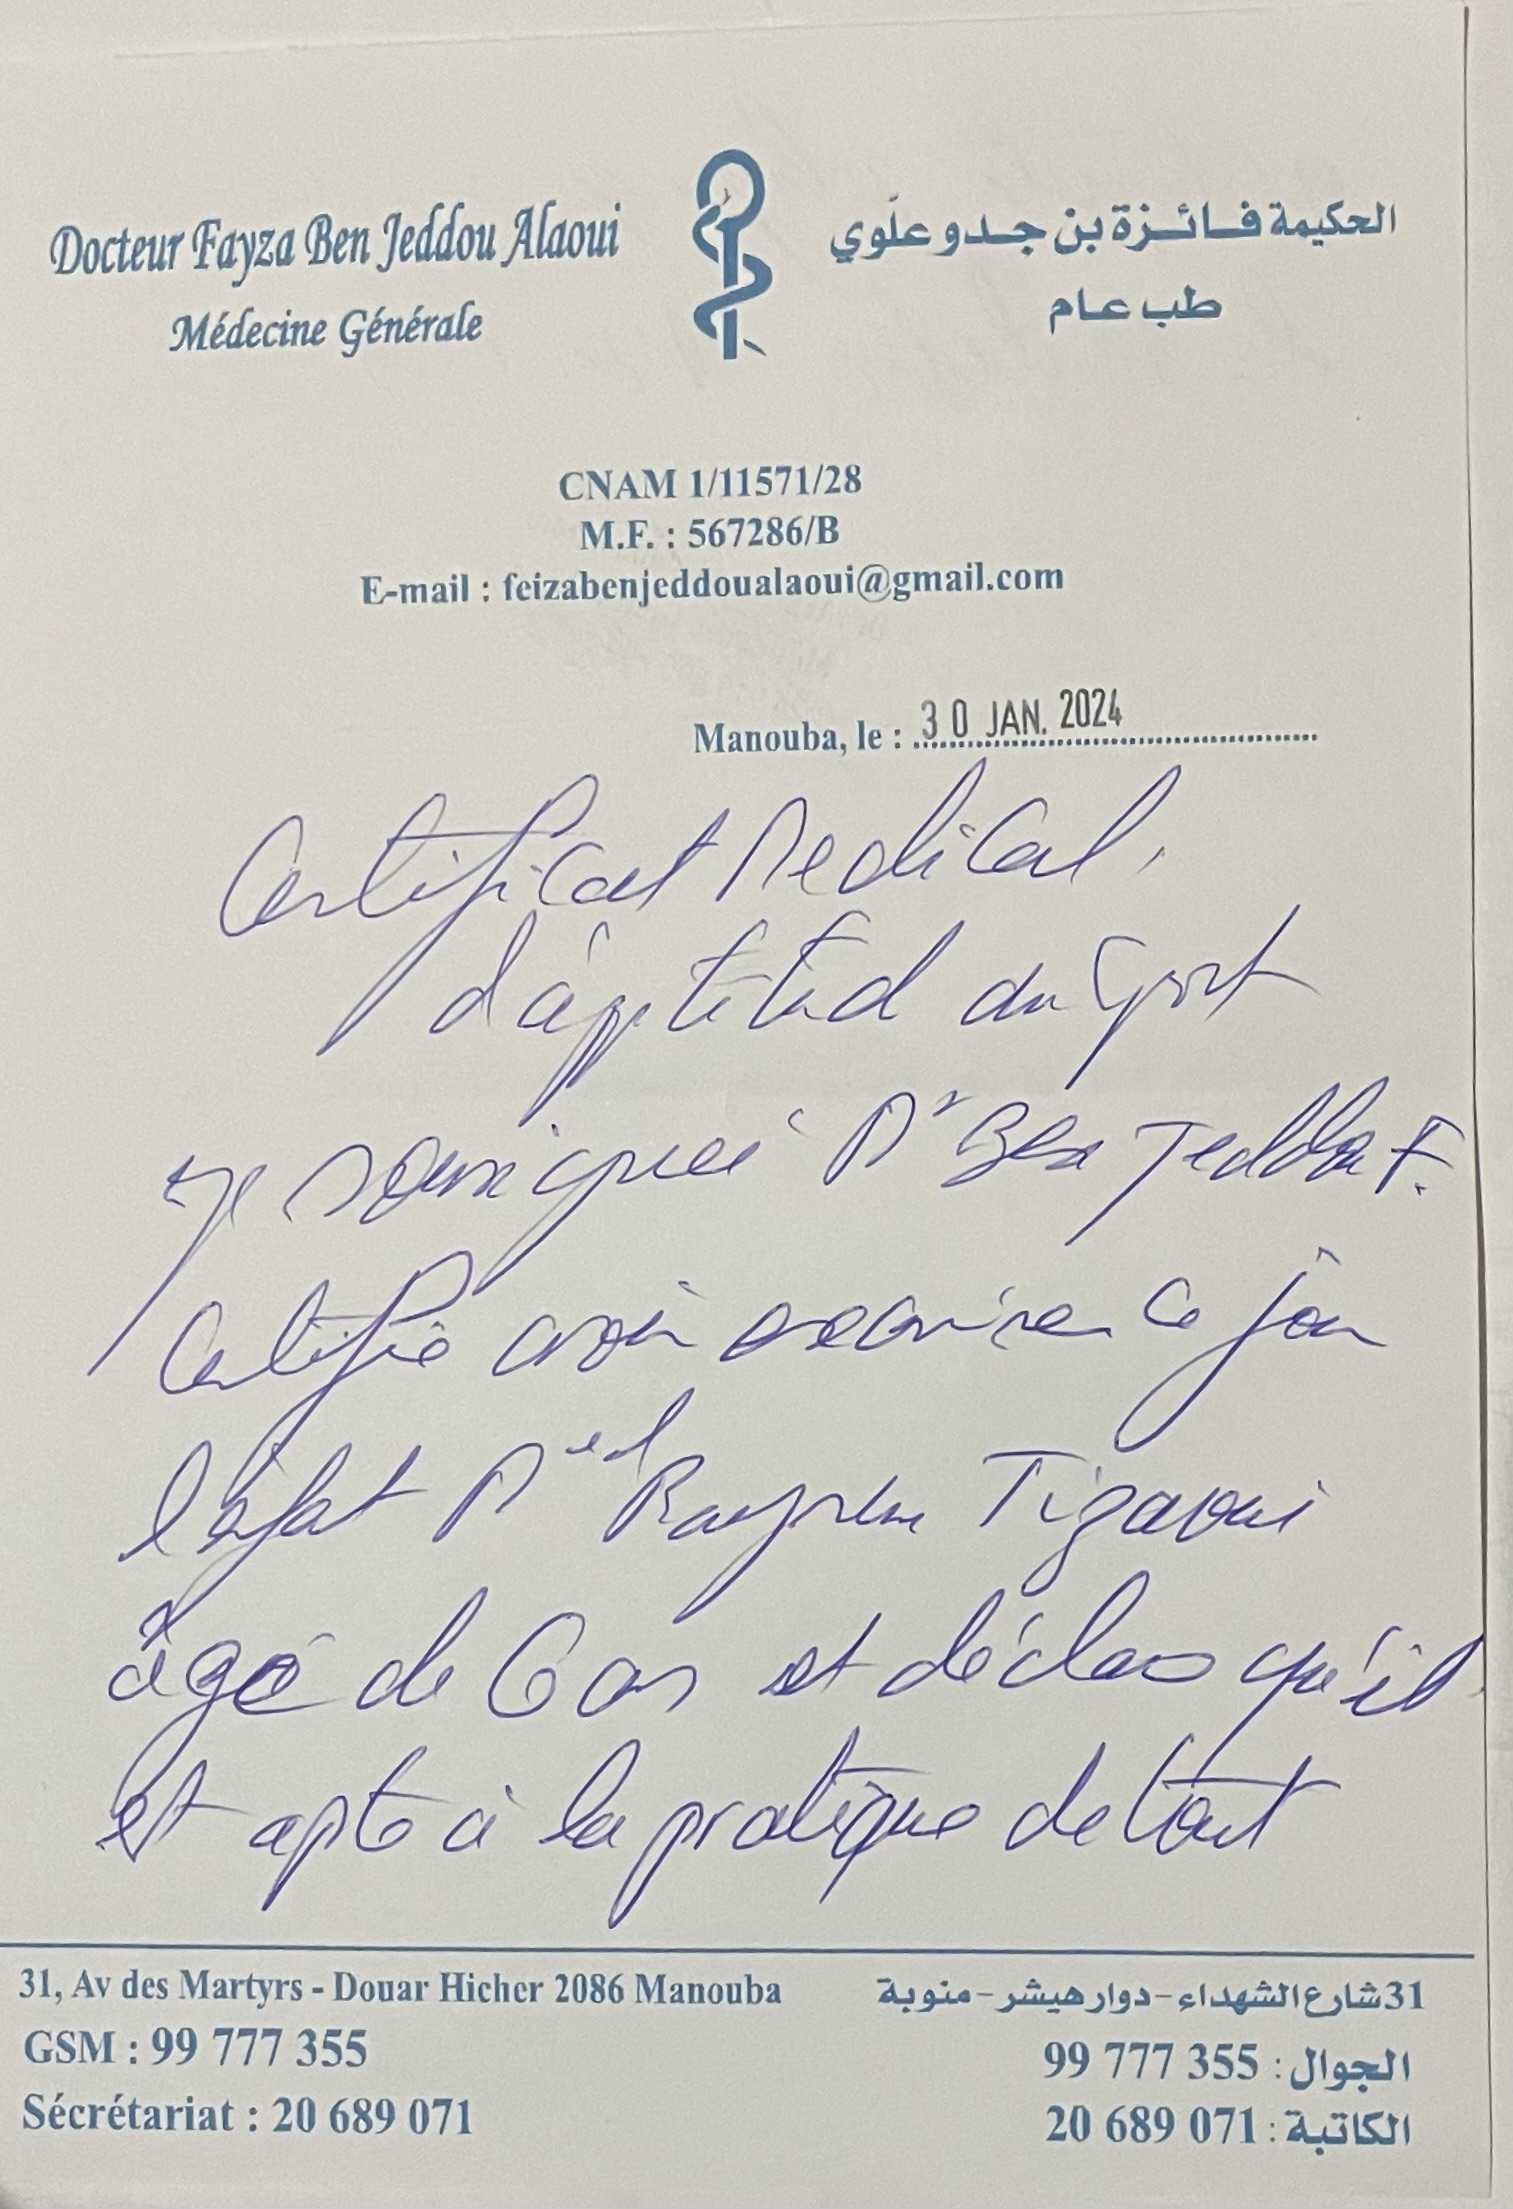 Docteur Fayza Ben Jeddou Alaoui
Médecine Générale
الحكيمة فائزة بن جدو علّوي
طب عام
CNAM 1/11571/28
M.F. : 567286/B
E-mail : feizabenjeddoualaoui@gmail.com
Manouba, le : 30 JAN. 2024
Certificat Medical
d'aptitud au sport
Je soussignée Dr Ben Jeddou F.
Certifie avoir examiner ce jour
l'enfant Tizaoui
âgé de 6 ans et déclare qu'il
est apte à la pratique de tout
31, Av des Martyrs - Douar Hicher 2086 Manouba
GSM : 99 777 355
Sécrétariat : 20 689 071
31 شارع الشهداء - دوار هيشر - منوبة
الجوال : 355 777 99
الكاتبة : 071 689 20